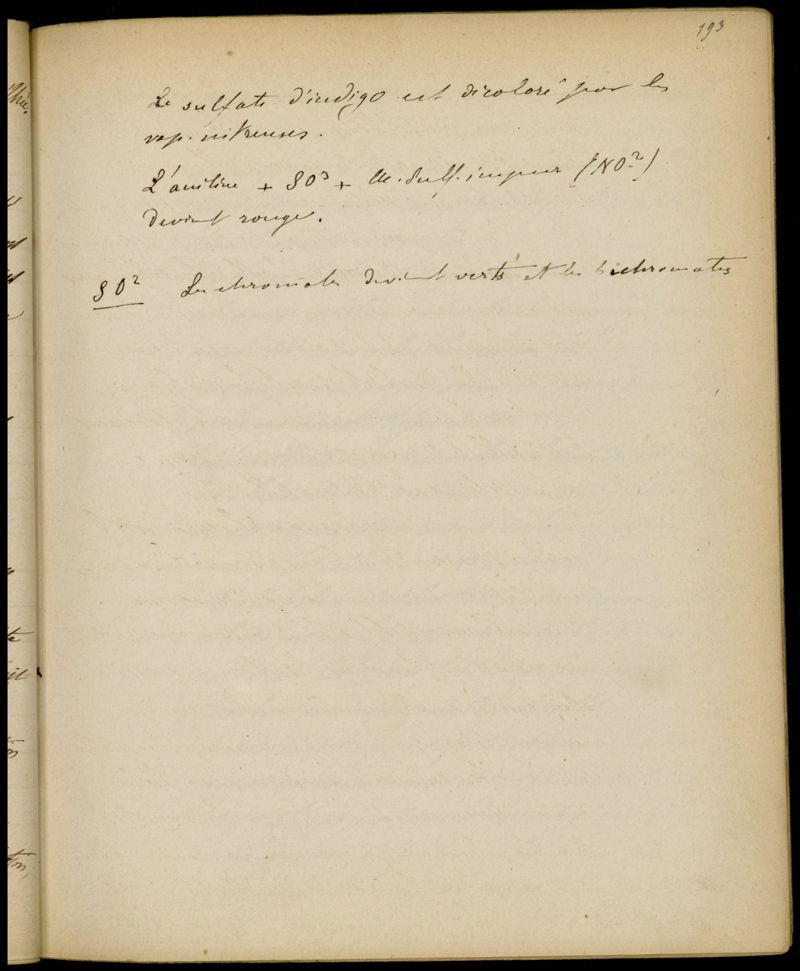 193
Le sulfate d'indigo est décoloré par les
vap. nitreuses.
L'aniline + SO³ + ac. sulf. impur (NO²)
devient rouge.
SO² Les chromates devient verts et les bichromates